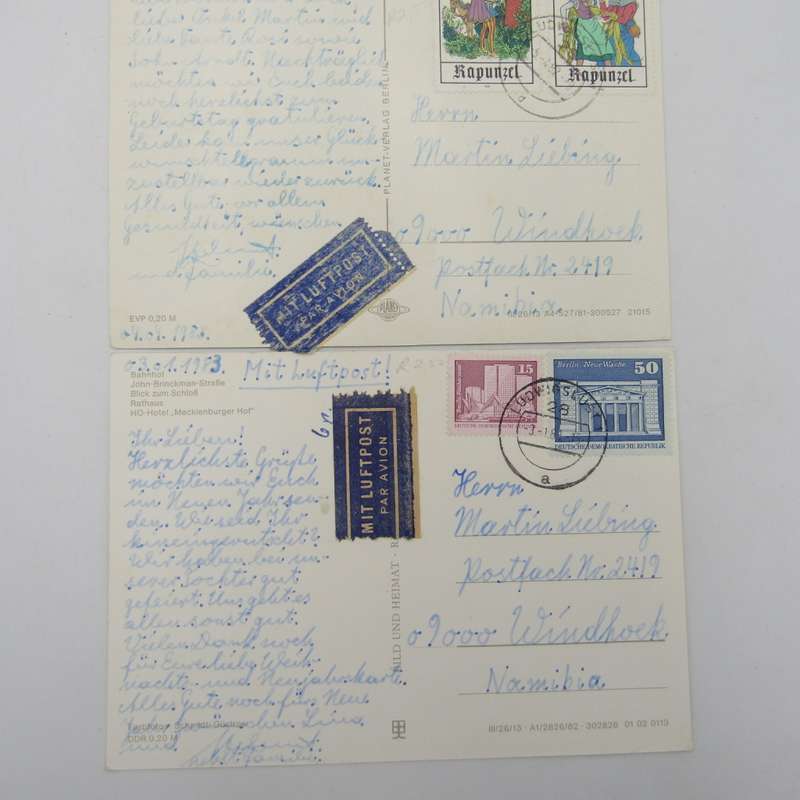 lieber Onkel Martin und
liebe Tante Rosi sowie
Nachträglich
möchten wir Euch beiden
noch herzlichst zum
Geburtstag gratulieren.
Leider kam unser Glück-
wunschtelegramm un-
zustellbar wieder zurück.
Alles Gute, vor allem
Gesundheit, wünschen
Helmut
und Familie
EVP 0,20 M
04.01.1983
PLANET-VERLAG BERLIN
Rapunzel
Rapunzel
LUDWIGSLUST
Herrn
Martin Liebing
09000 Windhoek
Postfach Nr. 2419
Namibia
MIT LUFTPOST
PAR AVION
PLANET
III/26/13 A4-527/81-300527 21015
03.01.1983
Mit Luftpost!
Bahnhof
John-Brinckman-Straße
Blick zum Schloß
Rathaus
HO-Hotel „Mecklenburger Hof"
Ihr Lieben!
Herzlichste Grüße
möchten wir Euch
im Neuen Jahr sen-
den. Wie seid Ihr
hineingerutscht?
Wir haben bei un-
serer Tochter gut
gefeiert. Uns geht es
allen sonst gut.
Vielen Dank noch
für Eure liebe Weih-
nachts- und Neujahrskarte.
Alles Gute noch fürs Neue
Jahr wünschen Lina
und Helmut
nebst Familie
DDR 0,20 M
MIT LUFTPOST
PAR AVION
BILD UND HEIMAT
15
DEUTSCHE DEMOKRATISCHE REPUBLIK
Berlin, Neue Wache
50
DEUTSCHE DEMOKRATISCHE REPUBLIK
LUDWIGSLUST
28
a
Herrn
Martin Liebing
Postfach Nr. 2419
09000 Windhoek
Namibia
III/26/13 · A1/2826/82 · 302826 01 02 0113